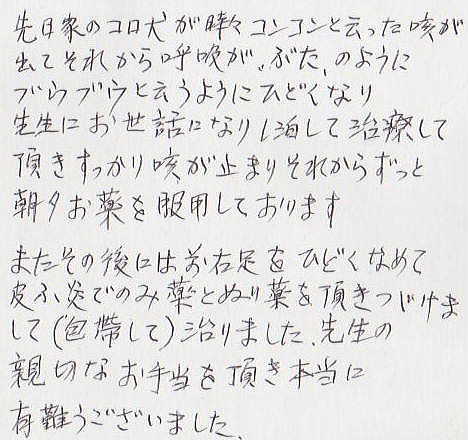 先日家のコロ犬が時々コンコンと云った咳が
出てそれから呼吸が〝ぶた〟のように
ブウブウと云うようにひどくなり
先生にお世話になり1泊して治療して
頂きすっかり咳が止まりそれからずっと
朝夕お薬を服用しております
またその後には前右足をひどくなめて
皮ふ炎でのみ薬とぬり薬を頂きつづけま
して(包帯して)治りました、先生の
親切なお手当を頂き本当に
有難うございました、